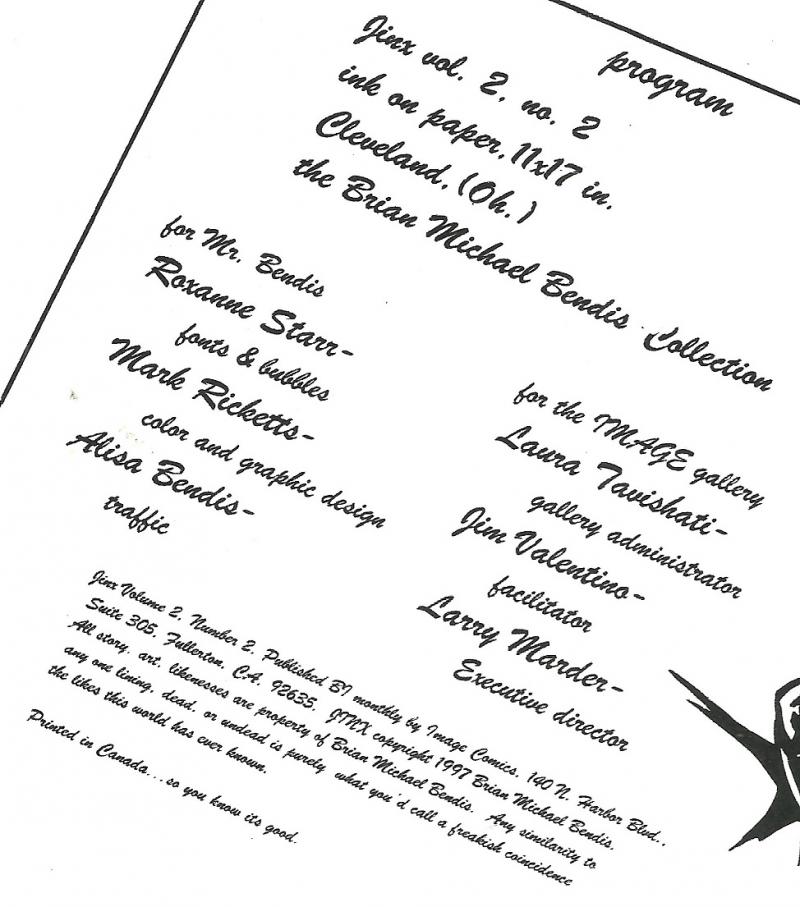 program
Jinx vol. 2, no. 2
ink on paper, 11x17 in.
Cleveland, (Oh.)
the Brian Michael Bendis Collection
for Mr. Bendis
Roxanne Starr-
fonts & bubbles
Mark Ricketts-
color and graphic design
Alisa Bendis-
traffic
for the IMAGE gallery
Laura Tavishati-
gallery administrator
Jim Valentino-
facilitator
Larry Marder-
Executive director
Jinx Volume 2, Number 2, Published BI monthly by Image Comics, 140 N. Harbor Blvd.,
Suite 305, Fullerton, C.A. 92635. JINX copyright 1997 Brian Michael Bendis.
All story, art, likenesses are property of Brian Michael Bendis. Any similarity to
any one lining, dead, or undead is purely what you'd call a freakish coincidence
the likes this world has ever known.
Printed in Canada...so you know its good.